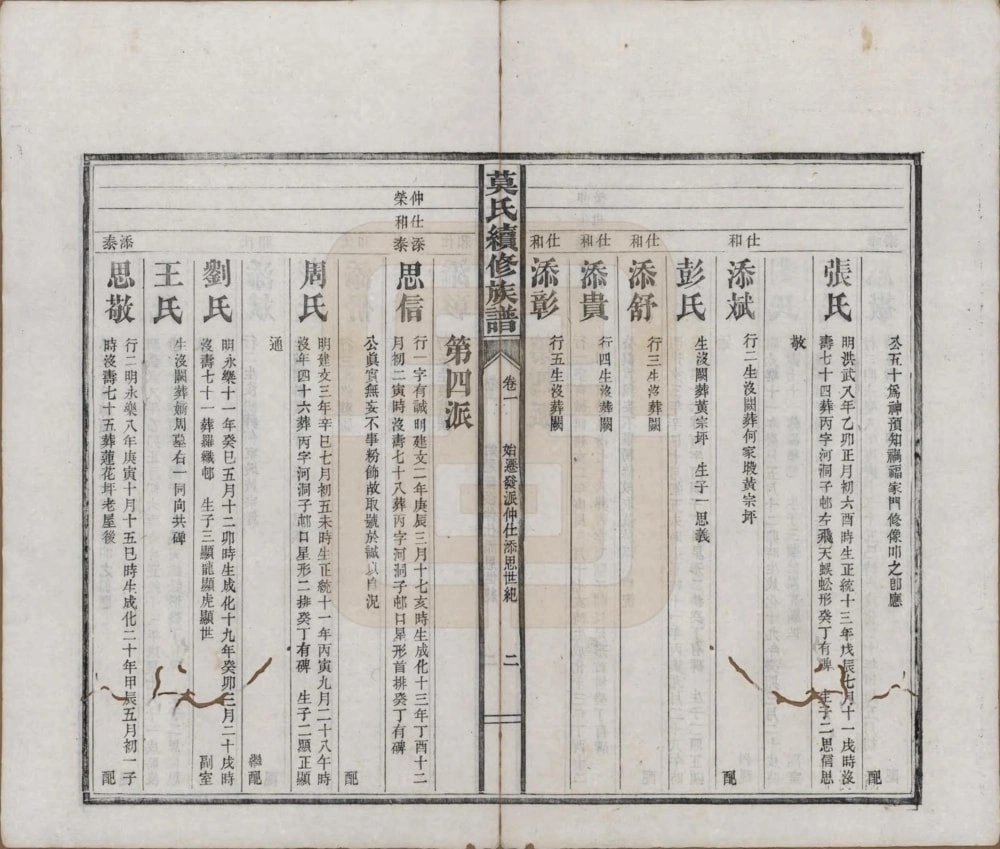 公五十爲神預知禍福家門修像叩之卽應
配
張氏
明洪武八年乙卯正月初六酉時生正統十三年戊辰七月十一戌時沒
壽七十四葬丙字河洞子邨左飛天蜈蚣形癸丁有碑 生子二思信思
敬
仕和
添斌
行二生沒闕葬何家塝黃宗坪
配
彭氏
生沒闕葬黃宗坪 生子一思義
仕和
添舒
行三生沒葬闕
仕和
添貴
行四生沒葬闕
仕和
添彰
行五生沒葬闕
莫氏續修族譜
卷一
始遷發派仲仕添思世紀
二
第四派
仲榮
仕和
添泰
思信
行一字有誠明建文二年庚辰三月十七亥時生成化十三年丁酉十二
月初二寅時沒壽七十八葬丙字河洞子邨口星形首排癸丁有碑
公眞實無妄不事粉飾故取號於誠以自況
配
周氏
明建文三年辛巳七月初五未時生正統十一年丙寅九月二十八午時
沒年四十六葬丙字河洞子邨口星形二排癸丁有碑 生子二顯正顯
通
繼配
劉氏
明永樂十一年癸巳五月十二卯時生成化十九年癸卯三月二十戌時
沒壽七十一葬羅織邨 生子三顯龍顯虎顯世
副室
王氏
生沒闕葬嫡周墓右一同向共碑
添泰
思敬
行二明永樂八年庚寅十月十五巳時生成化二十年甲辰五月初一子
時沒壽七十五葬蓮花坪老屋後
配